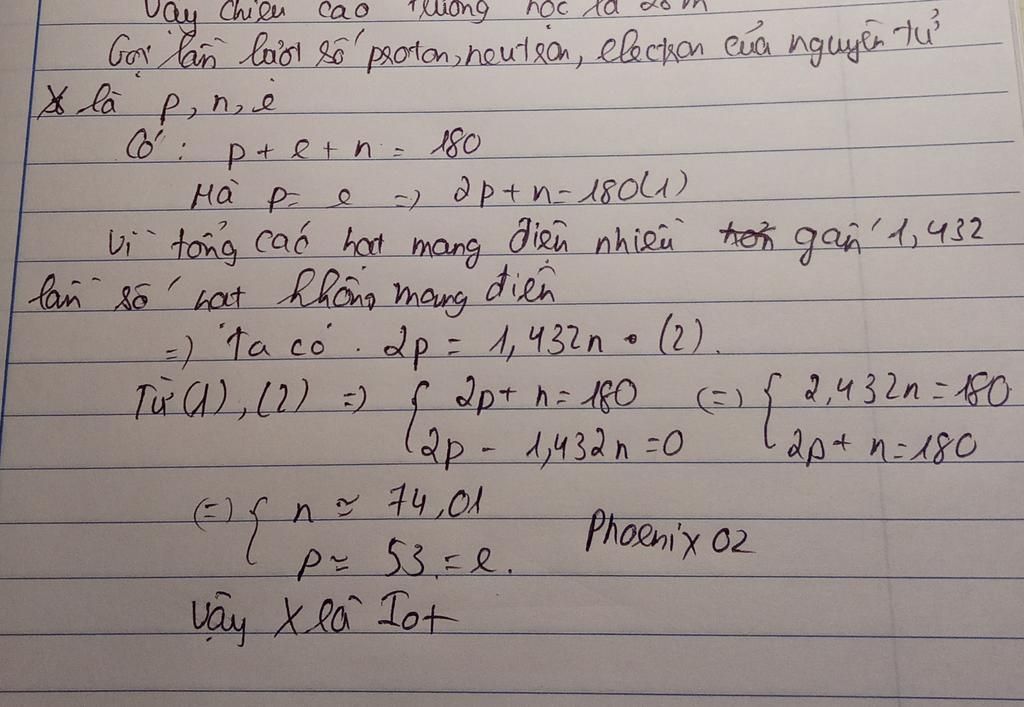 Vậy chiều cao trường học là 20m
Gọi lần lượt số proton, neutron, electron của nguyên tử
X là p, n, e
Có: p + e + n = 180
Mà p = e => 2p + n = 180 (1)
Vì tổng các hạt mang điện nhiều gấp 1,432
lần số hạt không mang điện
=) Ta có. 2p = 1,432n. (2).
Từ (1), (2) =) { 2p + n = 180 (=) { 2,432n = 180
2p - 1,432n = 0 2p + n = 180
(=) { n ≃ 74,01
p ≃ 53 = e.
Phoenix 02
Vậy X là Iot